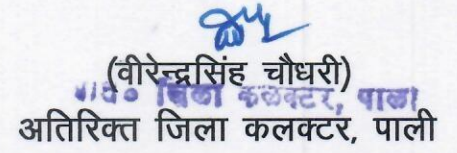 (वीरेन्द्रसिंह चौधरी)
जिला कलक्टर, पाली
अतिरिक्त जिला कलक्टर, पाली